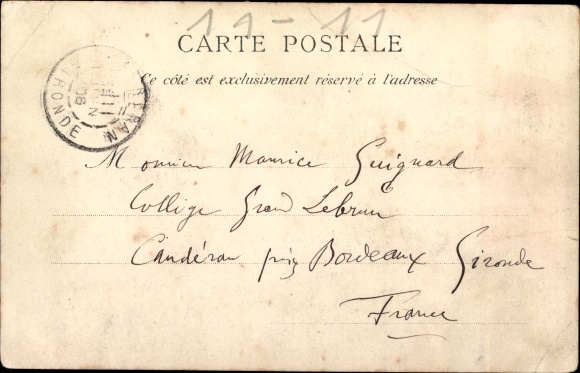 11-11
CARTE POSTALE
Ce côté est exclusivement réservé à l'adresse
GIRONDE
08
Monsieur Maurice Guignard
Collège Grand Lebrun
Caudéran près Bordeaux Gironde
France